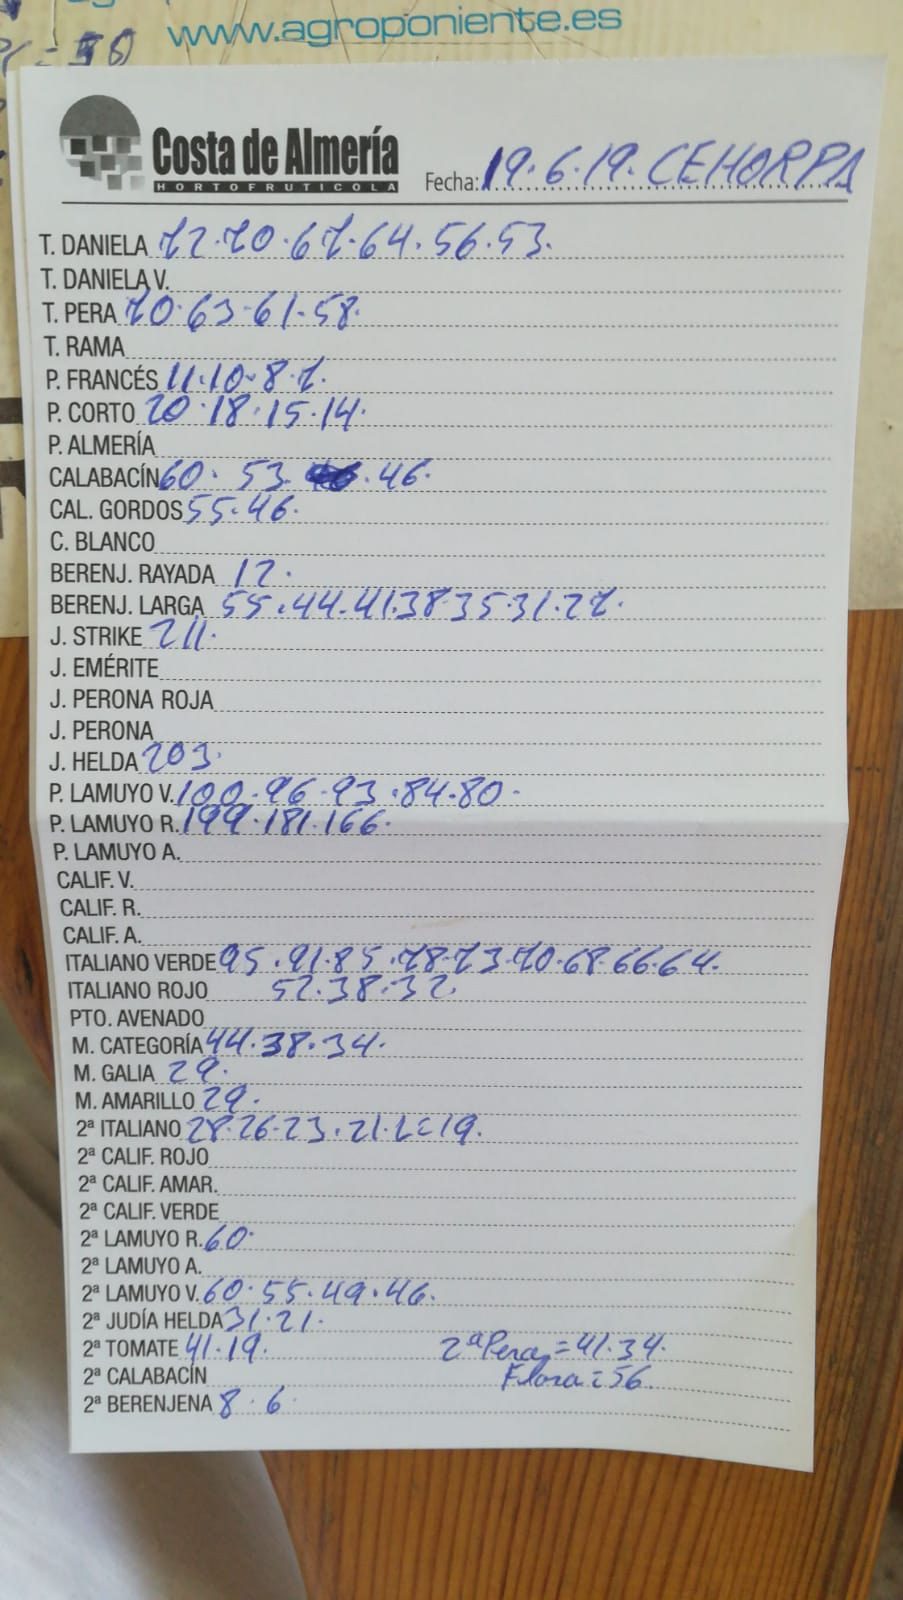 www.agroponiente.es
Costa de Almería
HORTOFRUTICOLA
Fecha: 19.6.19. CEHORPA
T. DANIELA 72.70.67.64.56.53.
T. DANIELA V.
T. PERA 70.63.61.58.
T. RAMA
P. FRANCÉS 11.10.8.7.
P. CORTO 20.18.15.14.
P. ALMERÍA
CALABACÍN 60. 53. .46.
CAL. GORDOS 55.46.
C. BLANCO
BERENJ. RAYADA 12.
BERENJ. LARGA 55.44.41.38.35.31.27.
J. STRIKE 211.
J. EMÉRITE
J. PERONA ROJA
J. PERONA
J. HELDA 203.
P. LAMUYO V. 100.96.93.84.80.
P. LAMUYO R. 199.181.166.
P. LAMUYO A.
CALIF. V.
CALIF. R.
CALIF. A.
ITALIANO VERDE 95.91.85.78.73.70.68.66.64.
ITALIANO ROJO 52.38.32.
PTO. AVENADO
M. CATEGORÍA 44.38.34.
M. GALIA 29.
M. AMARILLO 29.
2ª ITALIANO 28.26.23.21.L=19.
2ª CALIF. ROJO
2ª CALIF. AMAR.
2ª CALIF. VERDE
2ª LAMUYO R. 60.
2ª LAMUYO A.
2ª LAMUYO V. 60.55.49.46.
2ª JUDÍA HELDA 31.21.
2ª TOMATE 41.19. 2ª Pera = 41.34.
2ª CALABACÍN Flora = 56.
2ª BERENJENA 8.6.